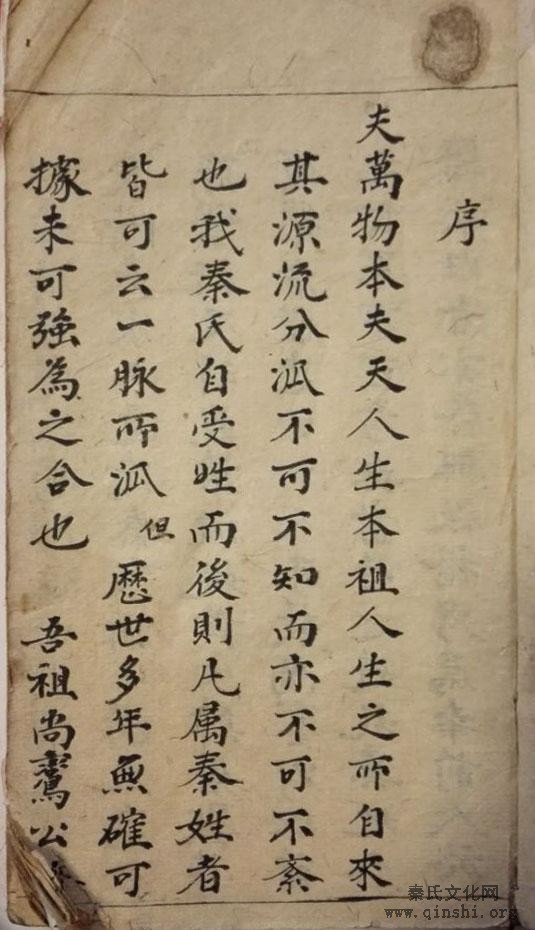 序
夫萬物本夫天人生本祖人生之所自來
其源流分派不可不知而亦不可不紊
也我秦氏自受姓而後則凡属秦姓者
皆可云一脉所派但歷世多年無確可
據未可強為之合也 吾祖尚騫公
秦氏文化网
www.qinshi.org